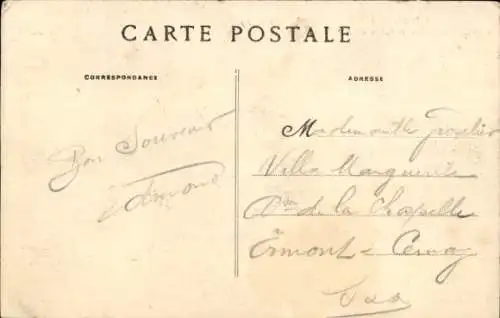 CARTE POSTALE
CORRESPONDANCE
ADRESSE
Bon Souvenir
Edmond
Mademoiselle
Villa Marguerite
de la Chapelle
Ermont - Cernay